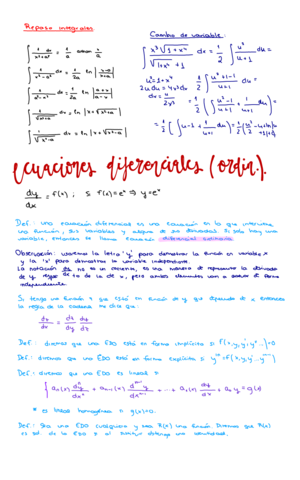 Repaso integrales
∫ 1/(x²+a²) dx = 1/a arctan x/a
∫ 1/(x²-a²) dx = 1/2a ln |(x-a)/(x+a)|
∫ 1/(a²-x²) dx = 1/2a ln |(a+x)/(a-x)|
∫ 1/√(x²+a²) dx = ln |x+√(x²+a²)|
∫ 1/√(x²-a²) dx = ln |x+√(x²-a²)|
Cambio de variable:
∫ x³√(1+x⁴)/(√(1+x⁴)+1) dx = 1/2 ∫ u²/(u+1) du =
u² = 1+x⁴
2u du = 4x³dx
dx = u/2x³
1/2 ∫ (u²+1-1)/(u+1) du =
= 1/2 (∫ (u²-1)/(u+1) + 1/(u+1) du) =
= 1/2 (∫ u-1 + 1/(u+1) du) =
ecuaciones diferenciales (ordin).
dy/dx = f(x) ; si f(x)=eˣ ⇒ y=eˣ
Def: una ecuación diferencial es una ecuación en la que interviene
una función, sus variables y alguna de sus derivadas. Si solo hay una
variable, entonces se llama ecuación diferencial ordinaria.
Observación: usaremos la letra 'y' para demostrar la función en variable x
y la 'x' para demostrar la variable independiente.
La notación dy/dx no es un cociente, es una manera de representar la derivada
de y respecto de la de x, pero ambos elementos van a actuar de forma
independiente.
Si tengo una función z que esté en función de y que depende de x entonces
la regla de la cadena me dice que:
dz/dx = dz/dy · dy/dx
Def: diremos que una EDO está en forma implícita si F(x,y,y',y''...)=0
Def: diremos que una EDO está en forma explícita si yⁿ⁾=F(x,y,y',...yⁿ⁻¹⁾)
Def: diremos que una EDO es lineal si
{ aₙ(x) dⁿy/dxⁿ + aₙ₋₁(x) dⁿ⁻¹y/dxⁿ⁻¹ + ... + a₁(x) dy/dx + a₀ y = g(x)
* es lineal homogénea si g(x)=0.
Def: Sea una EDO cualquiera y sea R(x) una función. Diremos que R(x)
es sol. de la EDO si al sustituir obtengo una identidad.